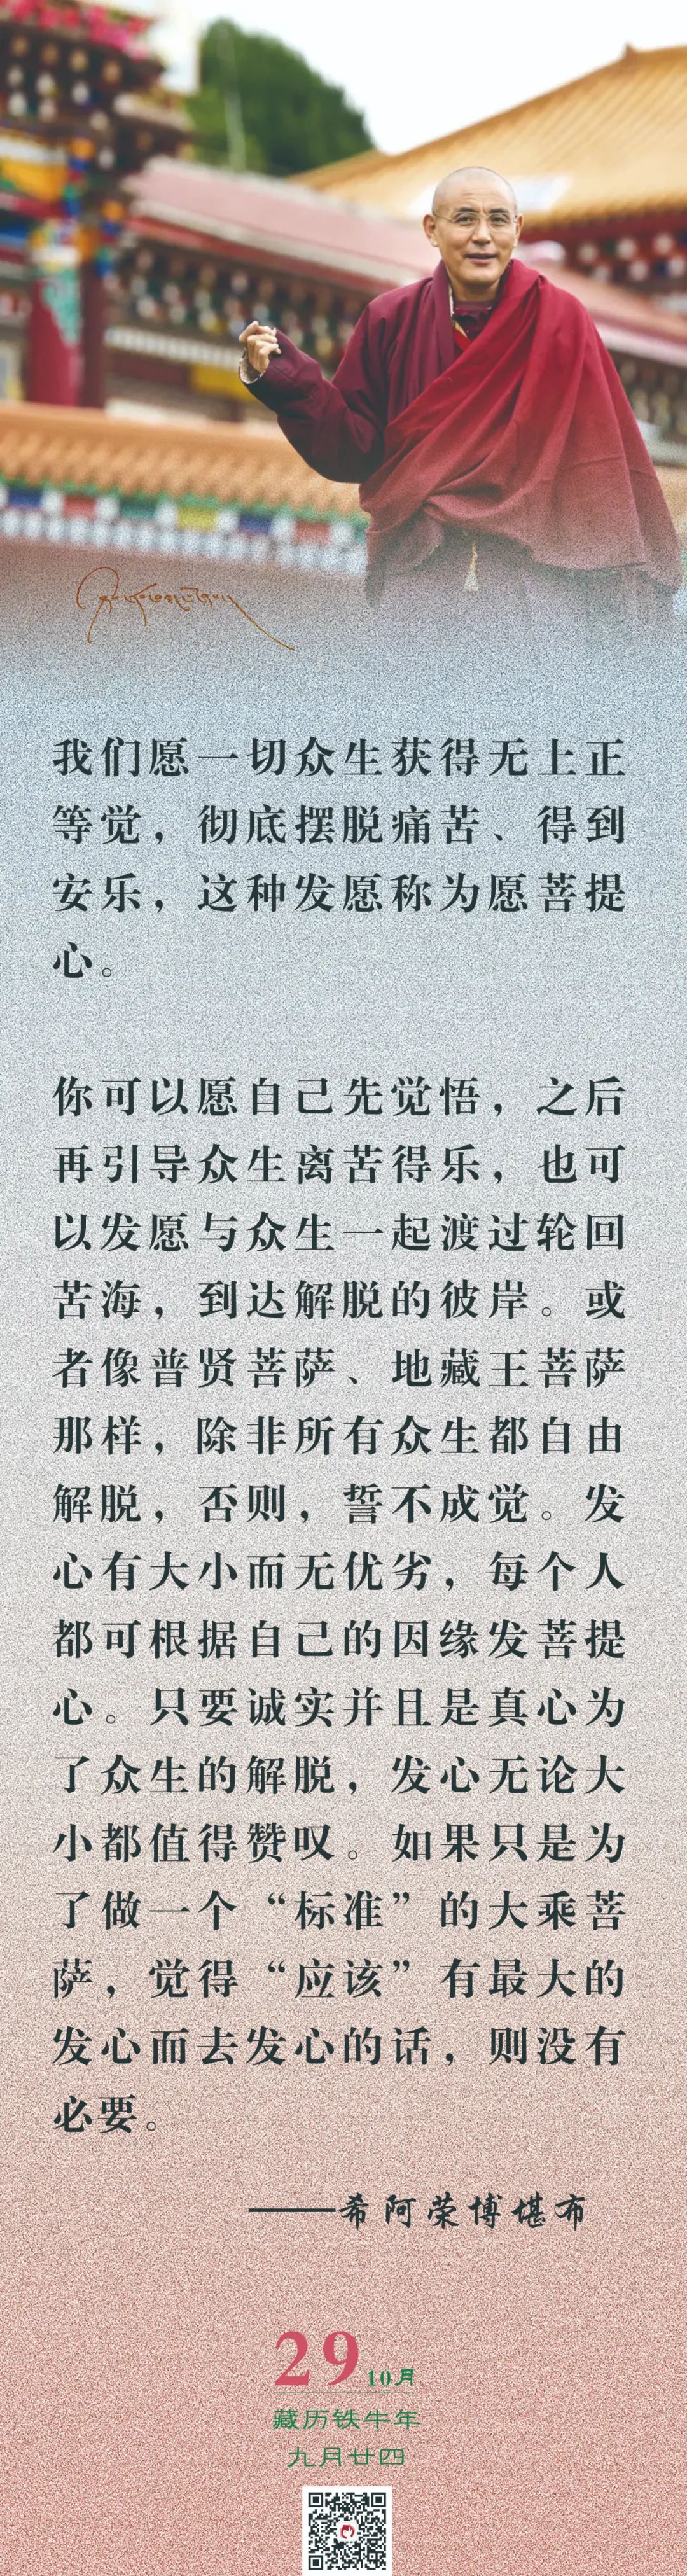 我们愿一切众生获得无上正
等觉，彻底摆脱痛苦、得到
安乐，这种发愿称为愿菩提
心。
你可以愿自己先觉悟，之后
再引导众生离苦得乐，也可
以发愿与众生一起渡过轮回
苦海，到达解脱的彼岸。或
者像普贤菩萨、地藏王菩萨
那样，除非所有众生都自由
解脱，否则，誓不成觉。发
心有大小而无优劣，每个人
都可根据自己的因缘发菩提
心。只要诚实并且是真心为
了众生的解脱，发心无论大
小都值得赞叹。如果只是为
了做一个“标准”的大乘菩
萨，觉得“应该”有最大的
发心而去发心的话，则没有
必要。
——希阿荣博堪布
29 10月
藏历铁牛年
九月廿四